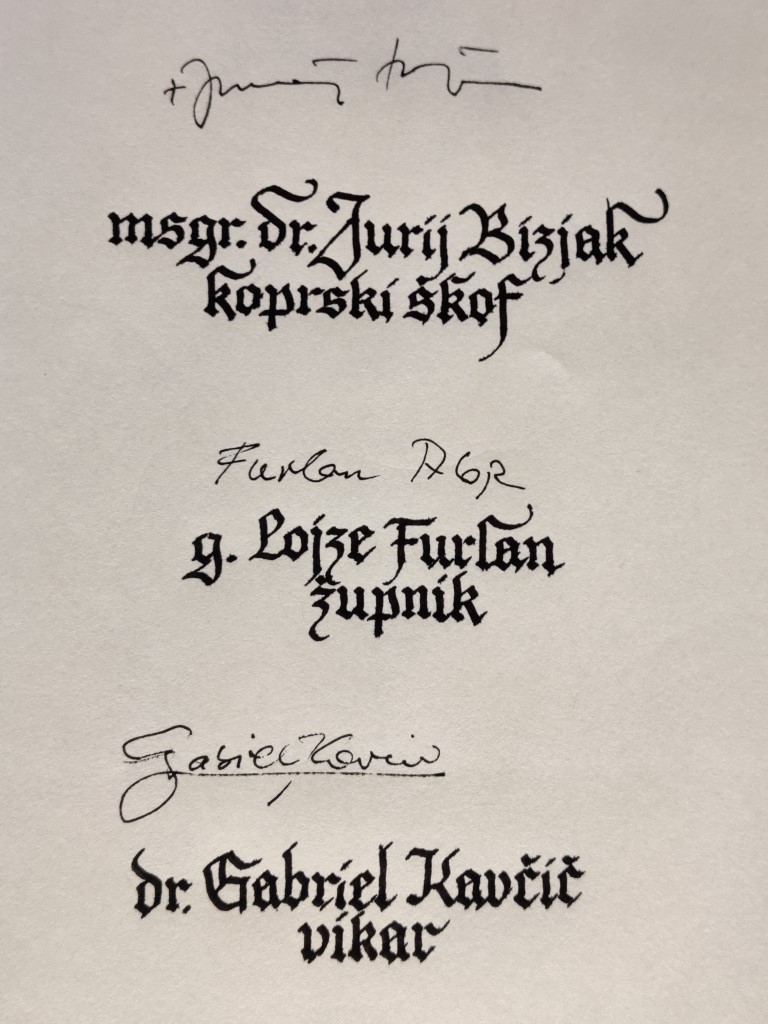 msgr. dr. Jurij Bizjak
koprski škof
Furlan
g. Lojze Furlan
župnik
Gabriel Kavčič
dr. Gabriel Kavčič
vikar